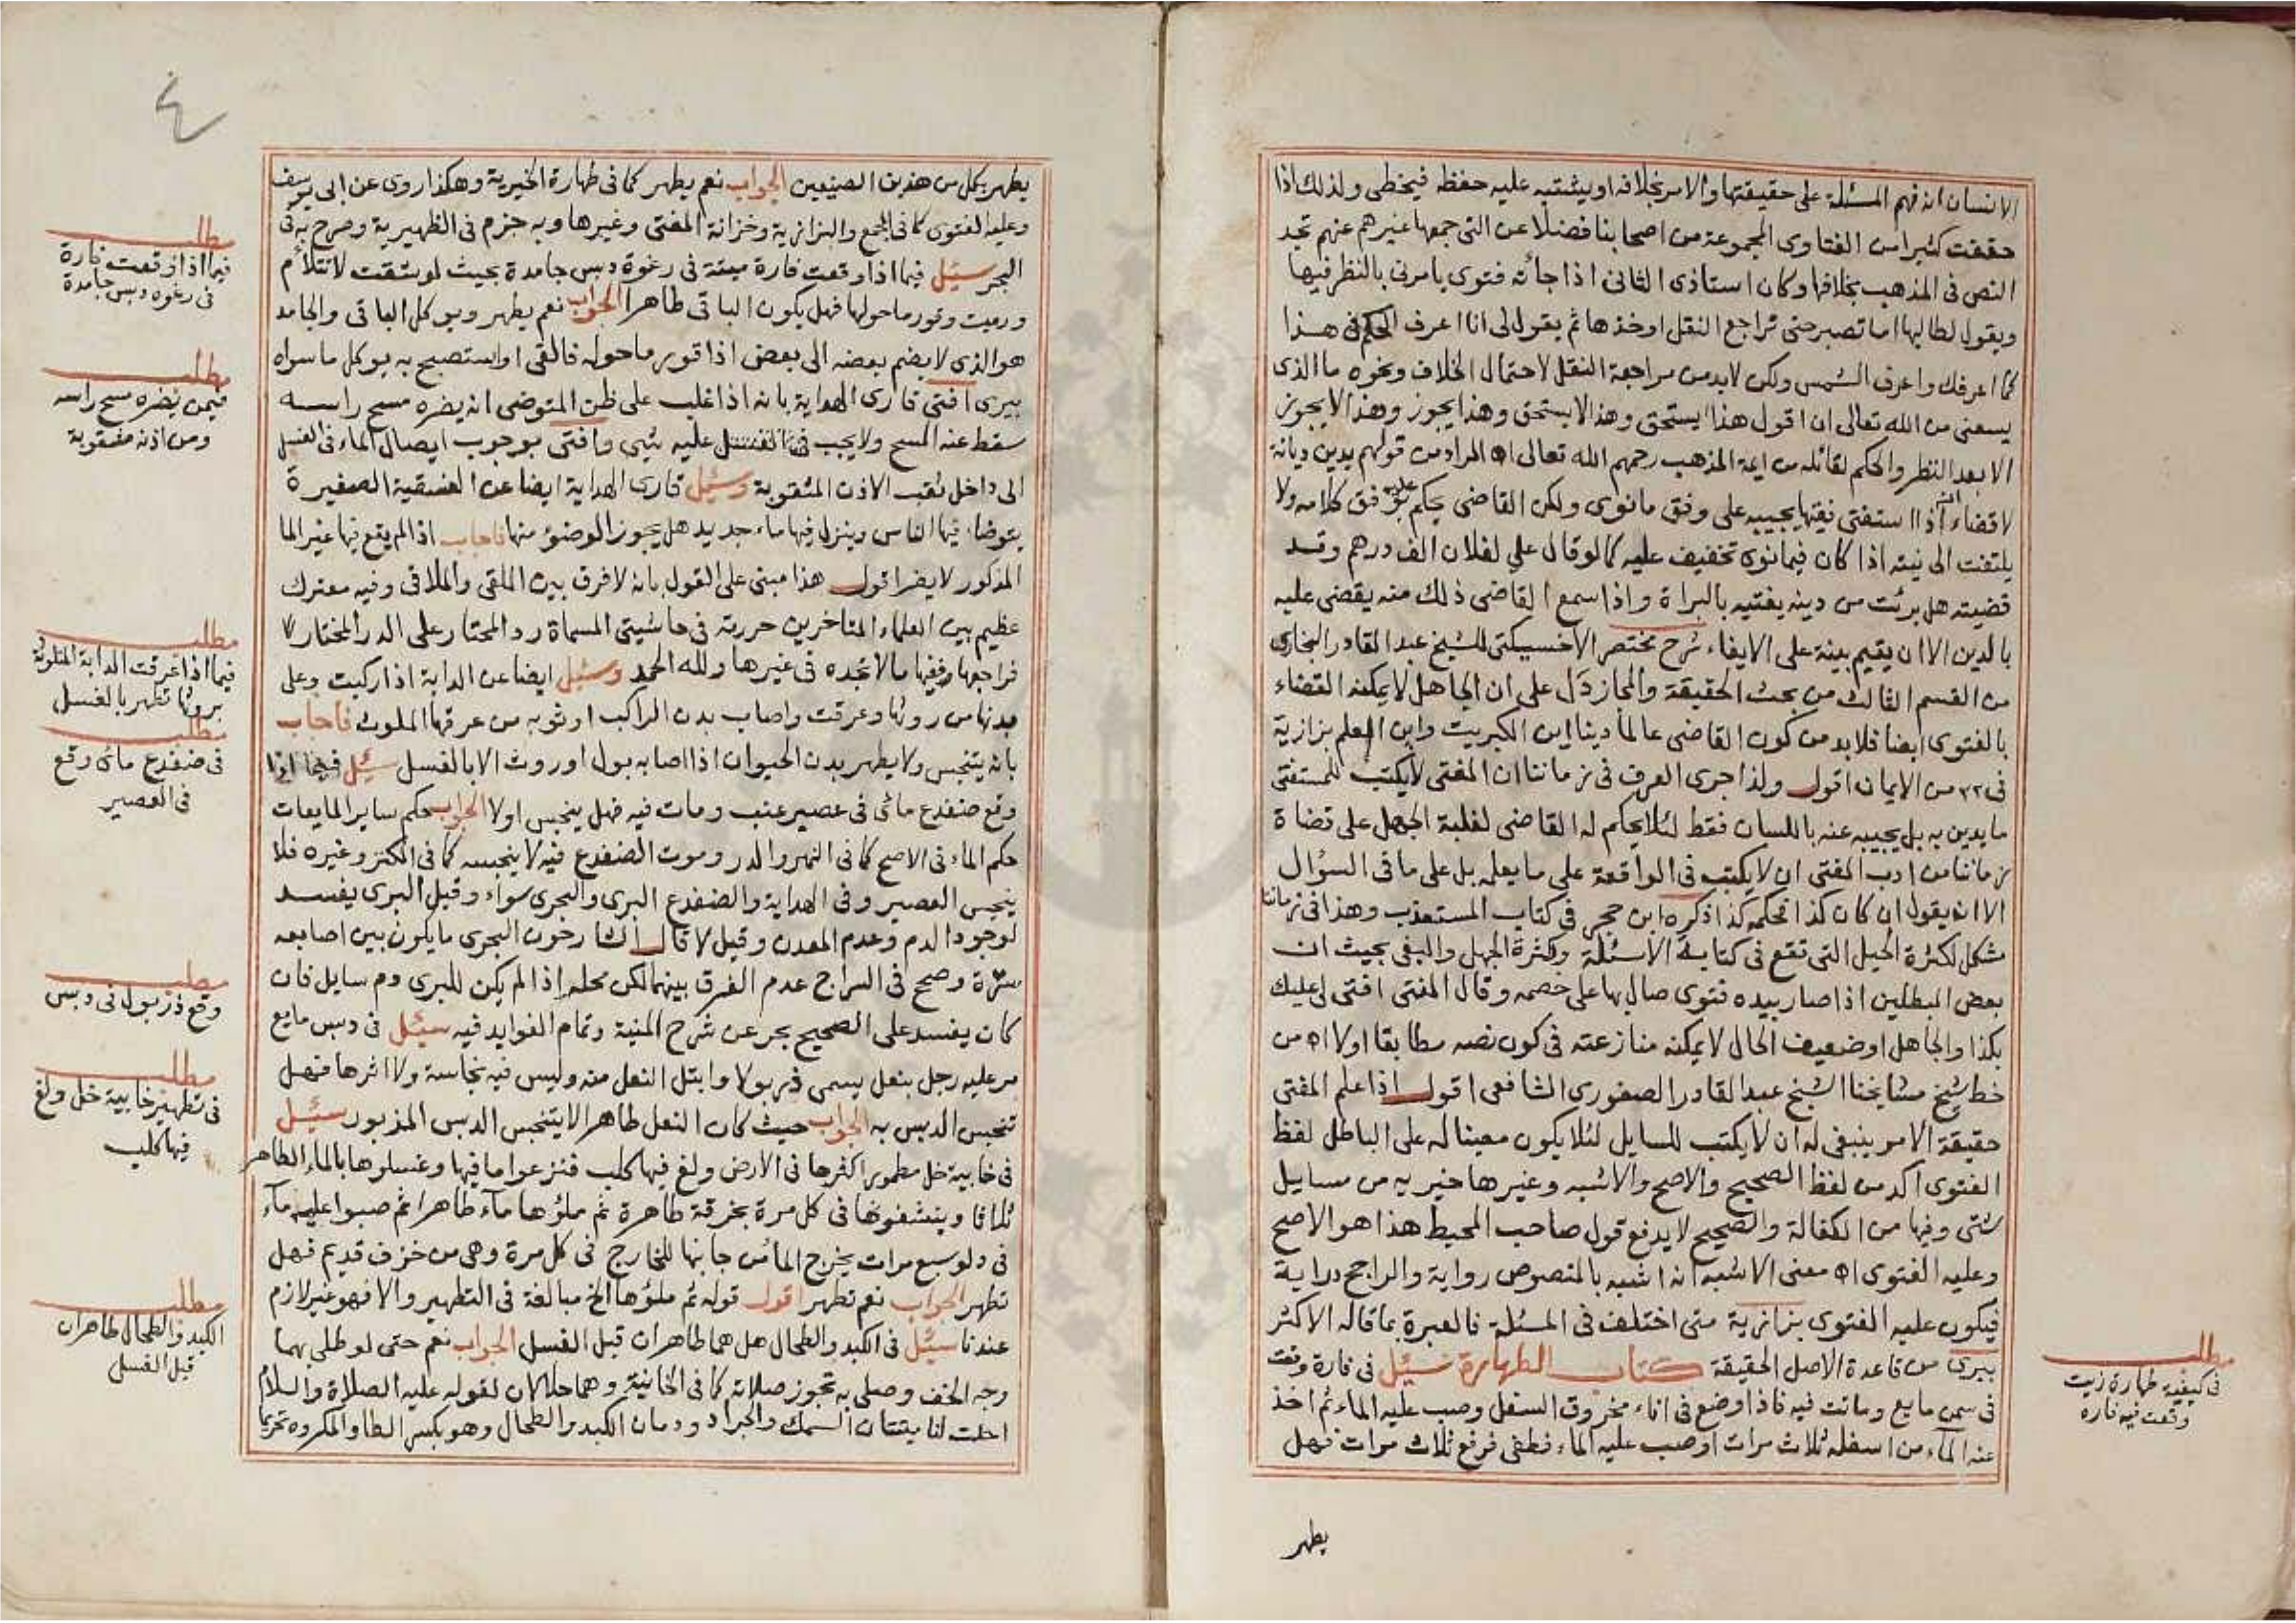 الانسان انه فهم المسئلة على حقيقتها والامر بخلافه او يشتبه عليه حفظه فيخطى ولذلك اذا
حققت كثيرا من الفتاوى المجموعة من اصحابنا فضلا عن التى جمعها غيرهم عنهم تجد
النص فى المذهب بخلافها وكان استاذى الثانى اذا جأته فتوى يامرنى بالنظر فيها
ويقول لطالبها اما تصبر حتى تراجع النقل او خذها ثم يقول لى انا اعرف الحكم فى هذا
كما اعرفك واعرف الشمس ولكن لابد من مراجعة النقل لاحتمال الخلاف ونحوه ما الذى
يسعنى من الله تعالى ان اقول هذا يستحق وهذا لا يستحق وهذا يجوز وهذا لا يجوز
الا بعد النظر والحكم لقائله من ايمة المذهب رحمهم الله تعالى اه المراد من قولهم يدين ديانة
لا قضاء انه اذا استفتى فقيها يجيبه على وفق ما نوى ولكن القاضى يحكم عليه بوفق كلامه ولا
يلتفت الى نيته اذا كان فيما نوى تخفيف عليه كما لو قال على لفلان الف درهم وقد
قضيته هل برئت من دينه يفتيه بالبراة واذا سمع القاضى ذلك منه يقضى عليه
بالدين الا ان يقيم بينة على الايفاء شرح مختصر الاخسيكتى للشيخ عبد القادر البخارى
من القسم الثالث من بحث الحقيقة والمجاز دل على ان الجاهل لا يمكنه القضاء
بالفتوى ايضا فلابد من كون القاضى عالما دينا اين الكبريت واين العلم بزازية
فى ٢٢ من الايمان اقول ولذا جرى العرف فى زماننا ان المفتى لا يكتب للمستفتى
ما يدين به بل يجيبه عنه باللسان فقط لئلا يحكم له القاضى لغلبة الجهل على قضاة
زماننا من ادب المفتى ان لا يكتب فى الواقعة على ما يعلمه بل على ما فى السؤال
الا انه يقول ان كان كذا تحكمه كذا ذكره ابن حجر فى كتاب المستعذب وهذا فى زماننا
شكل لكثرة الحيل التى تقع فى كتابة الاسئلة وكثرة الجهل والبغى بحيث ان
بعض المبطلين اذا صار بيده فتوى صال بها على خصمه وقال المفتى افتى لى عليك
بكذا والجاهل او ضعيف الحال لا يمكنه منازعته فى كون نصه مطابقا اولا اه من
خط شيخ مشايخنا الشيخ عبد القادر الصفورى الشافعى اقول اذا علم المفتى
حقيقة الامر ينبغى له ان لا يكتب للسايل لئلا يكون معينا له على الباطل لفظ
الفتوى اكد من لفظ الصحيح والاصح والاشبه وغيرها خيريه من مسايل
شتى وفيها من الكفالة والصحيح لا يدفع قول صاحب المحيط هذا هو الاصح
وعليه الفتوى اه معنى الاشبه انه اشبه بالمنصوص رواية والراجح دراية
فيكون عليه الفتوى بزازية متى اختلف فى المسئلة فالعبرة بما قاله الاكثر
بيرى من قاعدة الاصل الحقيقة كتاب الطهارة سئل فى فارة وقعت
فى سمن مايع وماتت فيه فاذا وضع فى اناء مخروق السفل وصب عليه الماء ثم اخذ
عنه الماء من اسفله ثلاث مرات او صب عليه الماء فطفى فرفع ثلاث مرات فهل
يطهر
مطلب
فى كيفية طهارة زيت
وقعت فيه فاره
يطهر بكل من هذين الصنيعين الجواب نعم يطهر كما فى طهارة الخيرية وهكذا روى عن ابى يوسف
وعليه الفتوى كما فى المجمع والبزازية وخزانة المفتى وغيرها وبه جزم فى الظهيرية وصرح به فى
البحر سئل فيما اذا وقعت فارة ميتة فى رغوة دبس جامدة بحيث لو شقت لا تتلأم
ورميت وقور ما حولها فهل يكون الباقى طاهرا الجواب نعم يطهر ويوكل الباقى والجامد
هو الذى لا يضم بعضه الى بعض اذا قور ما حوله فالقى او استصبح به يوكل ما سواه
بيرى افتى قارى الهداية بانه اذا غلب على ظن المتوضى انه يضره مسح راسه
سقط عنه المسح ولا يجب عليه شيى وافتى بوجوب ايصال الماء فى الغسل
الى داخل ثقب الاذن المثقوبة وسئل قارى الهداية ايضا عن الفسقية الصغيرة
يتوضاء فيها الناس وينزل فيها ماء جديد هل يجوز الوضؤ منها فاجاب اذا لم يقع فيها غير الما
المذكور لا يضر اقول هذا مبنى على القول بانه لا فرق بين الملقى والملاقى وفيه معترك
عظيم بين العلماء المتاخرين حررته فى حاشيتى المسماة رد المحتار على الدر المختار
فراجعها ففيها ما لا تجده فى غيرها ولله الحمد وسئل ايضا عن الدابة اذا ركبت وعلى
بدنها من روثها وعرقت واصاب بدن الراكب او ثوبه من عرقها الملوث فاجاب
بانه يتنجس ولا يطهر بدن الحيوان اذا اصابه بول او روث الا بالغسل سئل فيما اذا
وقع ضفدع مائى فى عصير عنب ومات فيه فهل ينجس اولا الجواب حكم ساير المايعات
حكم الماء فى الاصح كما فى النهر والدر وموت الضفدع فيه لا ينجسه كما فى الكنز وغيره فلا
ينجس العصير وفى الهداية والضفدع البرى والبحرى سواء وقيل البرى يفسد
لوجود الدم وعدم المعدن وقيل لا قال الشارحون البحرى ما يكون بين اصابعه
سترة وصحح فى السراج عدم الفرق بينهما لكن محله اذا لم يكن للبرى دم سايل فان
كان يفسد على الصحيح بحر عن شرح المنية وتمام الفوايد فيه سئل فى دبس مايع
مر عليه رجل بنعل يسمى ذربولا وابتل النعل منه وليس فيه نجاسة ولا اثرها فهل
تنجس الدبس به الجواب حيث كان النعل طاهرا لا يتنجس الدبس المزبور سئل
فى خابية خل مطمور اكثرها فى الارض ولغ فيها كلب فنزعوا ما فيها وغسلوها بالماء الطاهر
ثلاثا وينشفونها فى كل مرة بخرقة طاهرة ثم ملؤها مآء طاهرا ثم صبوا عليه مآء
فى دلو سبع مرات يخرج الما من جابنها للخارج فى كل مرة وهى من خزف قديم فهل
تطهر الجواب نعم تطهر اقول قوله ثم ملؤها الخ مبالغة فى التطهير والا فهو غير لازم
عندنا سئل فى الكبد والطحال هل هما طاهران قبل الغسل الجواب نعم حتى لو طلى بهما
وجه الخف وصلى به تجوز صلاته كما فى الخانية وهما حلالان لقوله عليه الصلاة والسلام
احلت لنا ميتتان السمك والجراد ودمان الكبد والطحال وهو بكسر الطا والمكروه تحريما
مطلب
فيما اذا وقعت فارة
فى رغوه دبس جامدة
مطلب
فيمن يضره مسح راسه
ومن اذنه مثقوبة
مطلب
فيما اذا عرقت الدابة المتلوثة
بروثها تطهر بالغسل
مطلب
فى ضفدع مائى وقع
فى العصير
مطلب
وقع ذربول فى دبس
مطلب
فى تطهير خابية خل ولغ
فيها كلب
مطلب
الكبد والطحال طاهران
قبل الغسل